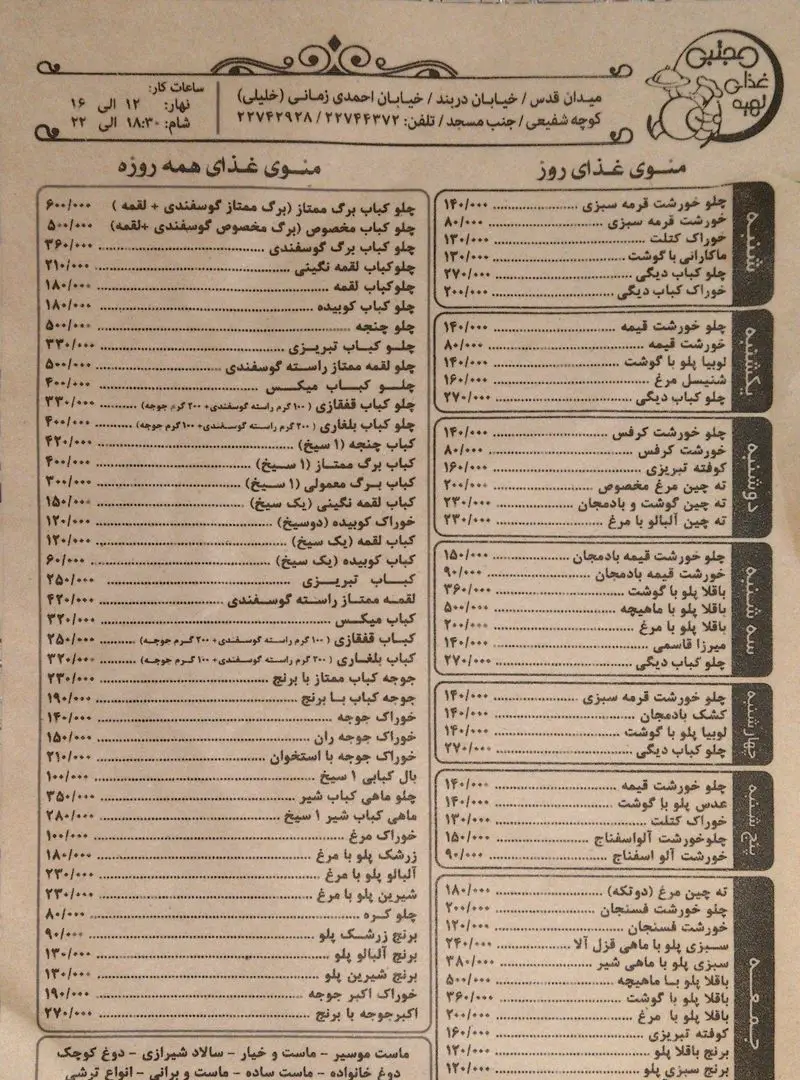 مجتبی
غذای
تهیه
میدان قدس / خیابان دربند / خیابان احمدی زمانی (خلیلی)
کوچه شفیعی / جنب مسجد / تلفن: ۲۲۷۴۴۳۷۲ / ۲۲۷۴۲۹۲۸
ساعات کار:
نهار: ۱۲ الی ۱۶
شام: ۱۸:۳۰ الی ۲۲
منوی غذای روز
شنبه
چلو خورشت قرمه سبزی ۱۴۰/۰۰۰
خورشت قرمه سبزی ۸۰/۰۰۰
خوراک کتلت ۱۳۰/۰۰۰
ماکارانی با گوشت ۱۳۰/۰۰۰
چلو کباب دیگی ۲۷۰/۰۰۰
خوراک کباب دیگی ۲۰۰/۰۰۰
یکشنبه
چلو خورشت قیمه ۱۴۰/۰۰۰
خورشت قیمه ۸۰/۰۰۰
لوبیا پلو با گوشت ۱۴۰/۰۰۰
شنیسل مرغ ۱۶۰/۰۰۰
چلو کباب دیگی ۲۷۰/۰۰۰
دوشنبه
چلو خورشت کرفس ۱۴۰/۰۰۰
خورشت کرفس ۸۰/۰۰۰
کوفته تبریزی ۱۶۰/۰۰۰
ته چین مرغ مخصوص ۲۰۰/۰۰۰
ته چین گوشت و بادمجان ۲۳۰/۰۰۰
ته چین آلبالو با مرغ ۲۳۰/۰۰۰
سه شنبه
چلو خورشت قیمه بادمجان ۱۵۰/۰۰۰
خورشت قیمه بادمجان ۹۰/۰۰۰
باقلا پلو با گوشت ۳۶۰/۰۰۰
باقلا پلو با ماهیچه ۵۰۰/۰۰۰
باقلا پلو با مرغ ۲۰۰/۰۰۰
میرزا قاسمی ۱۴۰/۰۰۰
چلو کباب دیگی ۲۷۰/۰۰۰
چهارشنبه
چلو خورشت قرمه سبزی ۱۴۰/۰۰۰
کشک بادمجان ۱۴۰/۰۰۰
لوبیا پلو با گوشت ۱۴۰/۰۰۰
چلو کباب دیگی ۲۷۰/۰۰۰
پنج شنبه
چلو خورشت قیمه ۱۴۰/۰۰۰
عدس پلو با گوشت ۱۴۰/۰۰۰
خوراک کتلت ۱۳۰/۰۰۰
چلوخورشت آلواسفناج ۱۵۰/۰۰۰
خورشت آلو اسفناج ۹۰/۰۰۰
جمعه
ته چین مرغ (دوتکه) ۱۸۰/۰۰۰
چلو خورشت فسنجان ۲۰۰/۰۰۰
خورشت فسنجان ۱۲۰/۰۰۰
سبزی پلو با ماهی قزل آلا ۲۴۰/۰۰۰
سبزی پلو با ماهی شیر ۳۸۰/۰۰۰
باقلا پلو با ماهیچه ۵۰۰/۰۰۰
باقلا پلو با گوشت ۳۶۰/۰۰۰
باقلا پلو با مرغ ۲۰۰/۰۰۰
کوفته تبریزی ۱۶۰/۰۰۰
برنج باقلا پلو ۱۲۰/۰۰۰
برنج سبزی پلو ۱۲۰/۰۰۰
منوی غذای همه روزه
چلو کباب برگ ممتاز (برگ ممتاز گوسفندی + لقمه ) ۶۰۰/۰۰۰
چلو کباب مخصوص (برگ مخصوص گوسفندی +لقمه) ۵۰۰/۰۰۰
چلو کباب برگ گوسفندی ۳۶۰/۰۰۰
چلوکباب لقمه نگینی ۲۱۰/۰۰۰
چلوکباب لقمه ۱۸۰/۰۰۰
چلو کباب کوبیده ۱۸۰/۰۰۰
چلو چنجه ۵۰۰/۰۰۰
چلو کباب تبریزی ۳۳۰/۰۰۰
چلو لقمه ممتاز راسته گوسفندی ۵۰۰/۰۰۰
چلو کباب میکس ۴۰۰/۰۰۰
چلو کباب قفقازی ( ۱۰۰ گرم راسته گوسفندی+ ۲۰۰ گرم جوجه) ۳۳۰/۰۰۰
چلو کباب بلغاری ( ۲۰۰ گرم راسته گوسفندی+ ۱۰۰ گرم جوجه) ۴۰۰/۰۰۰
کباب چنجه (۱ سیخ) ۴۲۰/۰۰۰
کباب برگ ممتاز (۱ سیخ) ۴۰۰/۰۰۰
کباب برگ معمولی (۱ سیخ) ۳۰۰/۰۰۰
کباب لقمه نگینی (یک سیخ) ۱۵۰/۰۰۰
خوراک کوبیده (دوسیخ) ۱۲۰/۰۰۰
کباب لقمه (یک سیخ) ۱۲۰/۰۰۰
کباب کوبیده (یک سیخ) ۶۰/۰۰۰
کباب تبریزی ۲۵۰/۰۰۰
لقمه ممتاز راسته گوسفندی ۴۲۰/۰۰۰
کباب میکس ۳۲۰/۰۰۰
کباب قفقازی ( ۱۰۰ گرم راسته گوسفندی+ ۲۰۰ گرم جوجه) ۲۵۰/۰۰۰
کباب بلغاری ( ۲۰۰ گرم راسته گوسفندی+ ۱۰۰ گرم جوجه) ۳۲۰/۰۰۰
جوجه کباب ممتاز با برنج ۲۳۰/۰۰۰
جوجه کباب با برنج ۱۹۰/۰۰۰
خوراک جوجه ۱۴۰/۰۰۰
خوراک جوجه ران ۱۵۰/۰۰۰
خوراک جوجه با استخوان ۲۱۰/۰۰۰
بال کبابی ۱ سیخ ۱۰۰/۰۰۰
چلو ماهی کباب شیر ۳۵۰/۰۰۰
ماهی کباب شیر ۱ سیخ ۲۸۰/۰۰۰
خوراک مرغ ۱۰۰/۰۰۰
زرشک پلو با مرغ ۱۸۰/۰۰۰
آلبالو پلو با مرغ ۲۳۰/۰۰۰
شیرین پلو با مرغ ۲۳۰/۰۰۰
چلو کره ۸۰/۰۰۰
برنج زرشک پلو ۹۰/۰۰۰
برنج آلبالو پلو ۱۳۰/۰۰۰
برنج شیرین پلو ۱۳۰/۰۰۰
خوراک اکبر جوجه ۱۹۰/۰۰۰
اکبرجوجه با برنج ۲۷۰/۰۰۰
ماست موسیر – ماست و خیار – سالاد شیرازی – دوغ کوچک
دوغ خانواده – ماست ساده – ماست و برانی – انواع ترشی